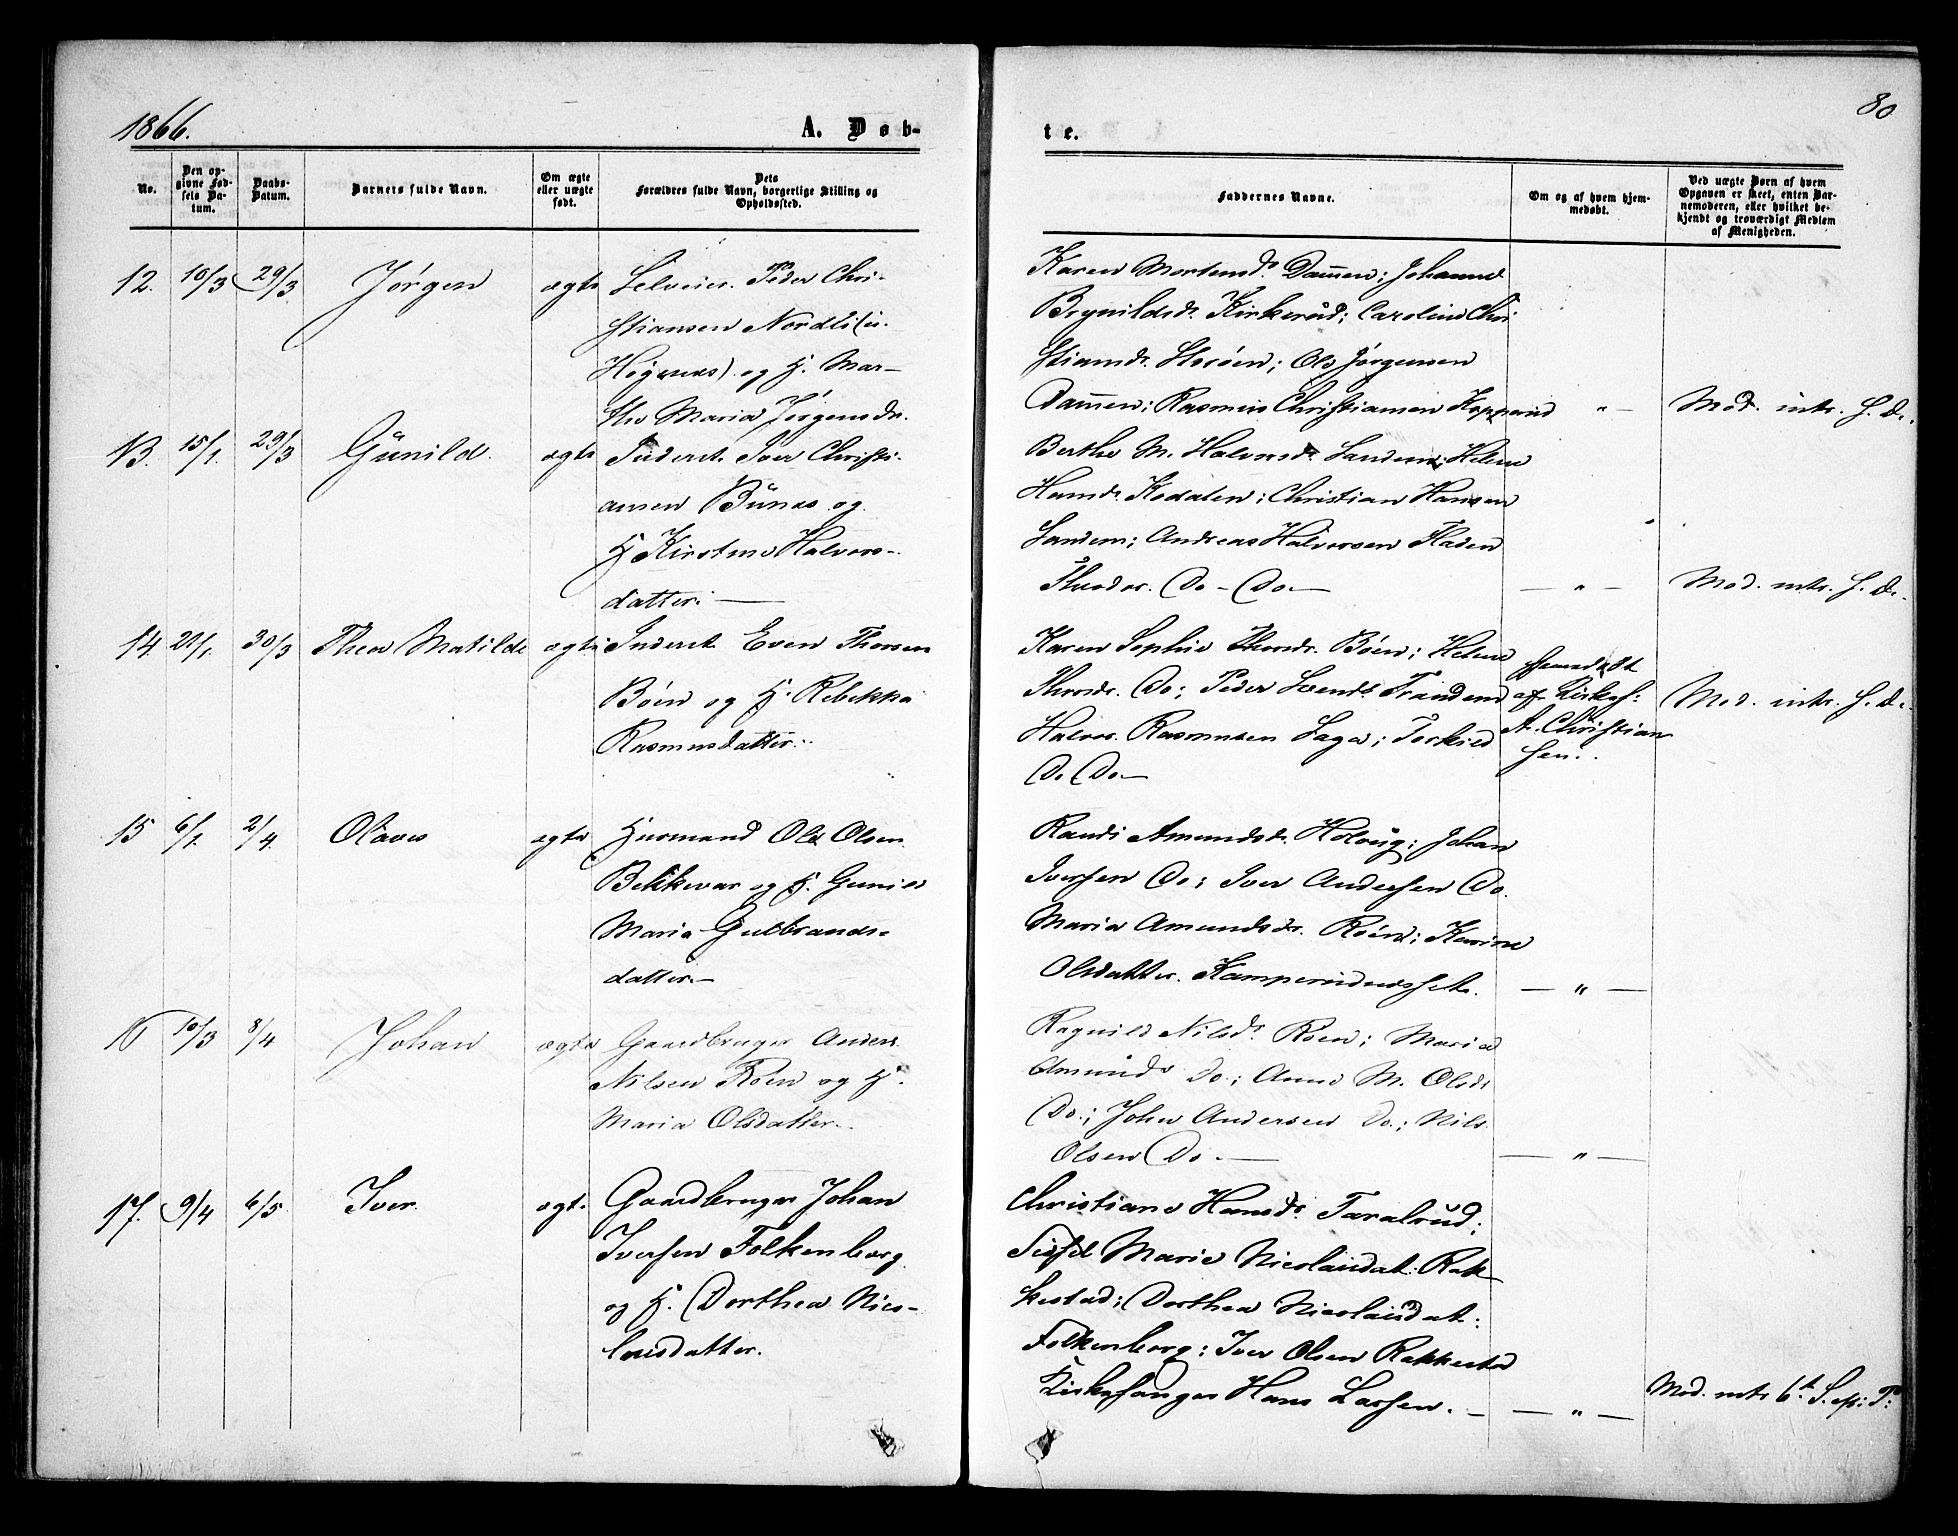 1866.
A. Døb-
te.
80
No.
Den op-
givne Fød-
sels Da-
tum.
Daabs-
Datum.
Barnets fulde Navn.
Om ægte
eller uægte
født.
Dets
Forældres fulde Navn, borgerlige Stilling og
Opholdssted.
Faddernes Navne.
Om og af hvem hjem-
medøbt.
Ved uægte Børn af hvem
Opgaven er skeet, enten Bar-
nemoderen, eller hvilket be-
kjendt og troværdigt Medlem
af Menigheden.
12. 10/3 29/3 Jørgen ægte Selveier Peder Chri-
stiansen Nordli (i
og H. Mar-
the Maria Jørgensdr.
Karen Mortensdr. Dammen; Johanne
Brynildsdr. Kirkerud; Caroline Chri
stiansdr. Ole Jørgensen
Dammen; Rasmus Christiansen " Mod. intr. H. D.
13. 15/1. 29/3 Gunild. ægte Inderst Iver Christi-
ansen Bunes og
H Kirstine Halvors-
datter.
Berthe M. Halvorsdr. Sandem; Helene
Hansdr. Kodalen; Christian Hansen
Sandem; Andreas Halvorsen Fladen
Do - Do — — " — Mod. intr. H. D.
14. 21/1. 30/3 Thea Matilde ægte Inderst Even Thorsen
Bøen og H. Rebekka
Rasmusdatter.
Karen Sophie Thorsdr. Bøen; Helene
Thorsdr. Do; Peder Svends. Trandem
Halvor Rasmusen Saga; Torkild
Do Do —
Hjemdøbt
af Kirkes:
A. Christian
sen.
Mod. intr. H. D.
15 6/1. 2/4. Olaves ægte Husmand Ole Olsen
Bekkevar og H. Gunild
Maria Gulbrands-
datter.
Randi Amundsdr. Holvug; Johan
Iversen Do; Iver Andersen Do.
Maria Amundsdr. Roen; Karine
Olsdatter — " —
16 10/3 8/4 Johan ægte Gaardbruger Anders
Nilsen Roen og H.
Maria Olsdatter.
Ragnild Nilsdr. Roen; Maria
Amundsdr Do.; Anne M. Olsdr
Do.; John Andersen Do.; Nils
Olsen Do. — — " —
17. 9/4 6/5 Iver. ægte Gaardbruger Johan
Iversen Folkenborg
og H. Dorthea Nico-
laisdatter.
Christiane Hansdr. Taralrud;
Marie Nicolaisdat. Rak
kestad; Dorthea Nicolaisdat:
Folkenborg; Iver Olsen Rakkestad
Kirkesanger Hans Larsen. — " — Mod. intr 6t S. ep: T: